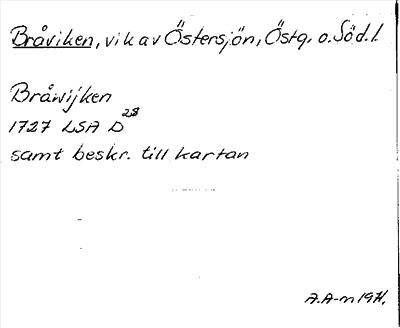 Bråviken, vik av Östersjön, Östg. o. Söd. l.
Bråwijken
1727 LSA D 28
samt beskr. till kartan
A.A-m 1971.